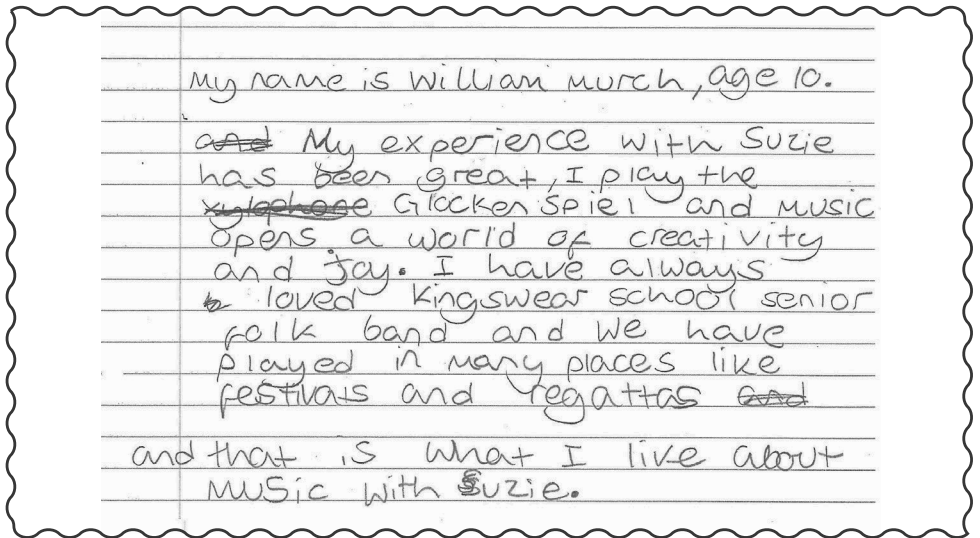 My name is William Murch, age 10.
and My experience with Suzie
has been great, I play the
xylophone Glockenspiel and music
opens a world of creativity
and joy. I have always
loved Kingswear school senior
folk band and we have
played in many places like
festivals and regattas and
and that is what I live about
music with Suzie.